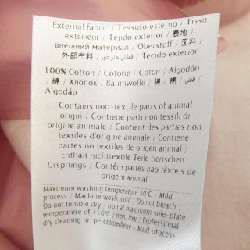 External fabric / Tessuto esterno / Tissu
extérieur / Tejido exterior / 表地 /
Внешний материал / Oberstoff / 面料 /
外部布料 / Tecido exterior
100% Cotton / Cotone / Coton / Algodón
/ 綿 / Хлопок / Baumwolle / 棉 / 棉 /
Algodão
Contains non-tex. le parts of animal
origin / Contiene parti non tessili di
origine animale / Contient des parties non
textiles d'origine animale / Contiene
partes no textiles de origen animal /
Enthält nicht textile Teile tierischen
Ursprungs / Contém partes não têxteis de
origem animal
Maximum washing temperature 30°C - Mild
process / Machine wash only / Do not bleach /
Do not tumble dry /
temperature of 110°C / Professional
dry cleaning in